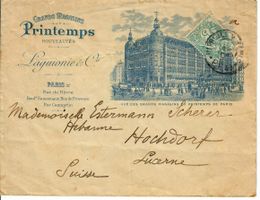 GRANDS MAGASINS
DU
Printemps
NOUVEAUTÉS
Laguionie & Cie
PARIS
Rue du Havre
Boulevard Haussmann, Rue de Provence
Rue Caumartin
VUE DES GRANDS MAGASINS DU PRINTEMPS DE PARIS
Mademoiselle Estermann Scherer
Hébamme
Hochdorf
Lucerne
Suisse